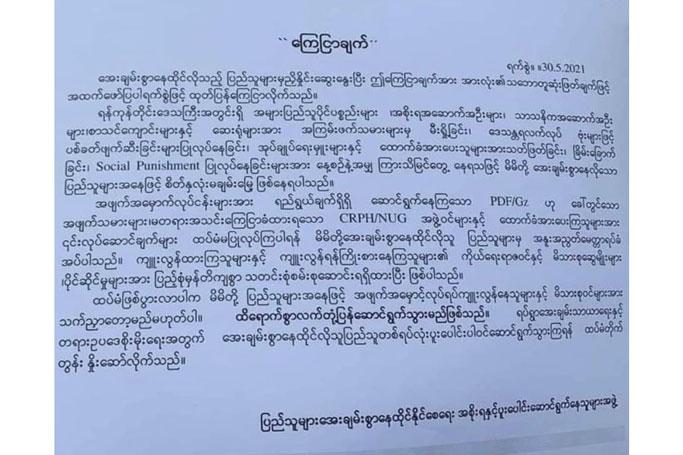 ``ကြေငြာချက်´´
ရက်စွဲ။ ။30.5.2021
အေးချမ်းစွာနေထိုင်လိုသည့် ပြည်သူများမှညှိနှိုင်းဆွေးနွေးပြီး ဤကြေငြာချက်အား အားလုံး၏သဘောတူဆုံးဖြတ်ချက်ဖြင့်
အထက်ဖော်ပြပါရက်စွဲဖြင့် ထုတ်ပြန်ကြေငြာလိုက်သည်။
ရန်ကုန်တိုင်းဒေသကြီးအတွင်းရှိ အများပြည်သူပိုင်ပစ္စည်းများ ၊အစိုးရအဆောက်အဦးများ၊ သာသနိကအဆောက်အဦ
များ၊စာသင်ကျောင်းများနှင့် ဆေးရုံများအား အကြမ်းဖက်သမားများမှ မီးရှို့ခြင်း၊ ဒေသန္တရလက်လုပ် ဗုံးများဖြင့်
ပစ်ခတ်ဖျက်ဆီးခြင်းများပြုလုပ်နေခြင်း၊ အုပ်ချုပ်ရေးမှူးများနှင့် ထောက်ခံအားပေးသူများအားသတ်ဖြတ်ခြင်း၊ ခြိမ်းခြောက်
ခြင်း၊ Social Punishment ပြုလုပ်နေခြင်းများအား နေ့စဉ်နဲ့အမျှ ကြားသိမြင်တွေ့ နေရသဖြင့် မိမိတို့ အေးချမ်းစွာနေလိုသော
ပြည်သူများအနေဖြင့် စိတ်နှလုံးမချမ်းမြေ့ ဖြစ်နေရပါသည်။
အဖျက်အမှောက်လုပ်ငန်းများအား ရည်ရွယ်ချက်ရှိရှိ ဆောင်ရွက်နေကြသော PDF/Gz ဟု ခေါ်တွင်သော
အဖျက်သမားများ၊မတရားအသင်းကြေငြာခံထားရသော CRPH/NUG အဖွဲ့ဝင်များနှင့် ထောက်ခံအားပေးကြသူများအား
၎င်းလုပ်ဆောင်ချက်များ ထပ်မံမပြုလုပ်ကြပါရန် မိမိတို့အေးချမ်းစွာနေထိုင်လိုသူ ပြည်သူများမှ အနူးအညွတ်မေတ္တာရပ်ခံ
အပ်ပါသည်။ ကျူးလွန်ထားကြသူများနှင့် ကျူးလွန်ရန်ကြိုးစားနေကြသူများ၏ ကိုယ်ရေးရာဇဝင်နှင့် မိသားစုဆွေမျိုးများ
၊ပိုင်ဆိုင်မှုများအား ပြည့်စုံမှန်တိကျစွာ သတင်းစုံစမ်းစုဆောင်းရရှိထားပြီး ဖြစ်ပါသည်။
ထပ်မံဖြစ်ပွားလာပါက မိမိတို့ ပြည်သူများအနေဖြင့် အဖျက်အမှောင့်လုပ်ရပ်ကျူးလွန်နေသူများနှင့် မိသားစုဝင်များအား
သက်ညှာတော့မည်မဟုတ်ပါ။ ထိရောက်စွာလက်တုံ့ပြန်ဆောင်ရွက်သွားမည်ဖြစ်သည်။ ရပ်ရွာအေးချမ်းသာယာရေးနှင့်
တရားဥပဒေစိုးမိုးရေးအတွက် အေးချမ်းစွာနေထိုင်လိုသူပြည်သူတစ်ရပ်လုံးပူးပေါင်းပါဝင်ဆောင်ရွက်သွားကြရန် ထပ်မံတိုက်
တွန်း နှိုးဆော်လိုက်သည်။
ပြည်သူများအေးချမ်းစွာနေထိုင်နိုင်စေရေး အစိုးရနှင့်ပူးပေါင်းဆောင်ရွက်နေသူများအဖွဲ့